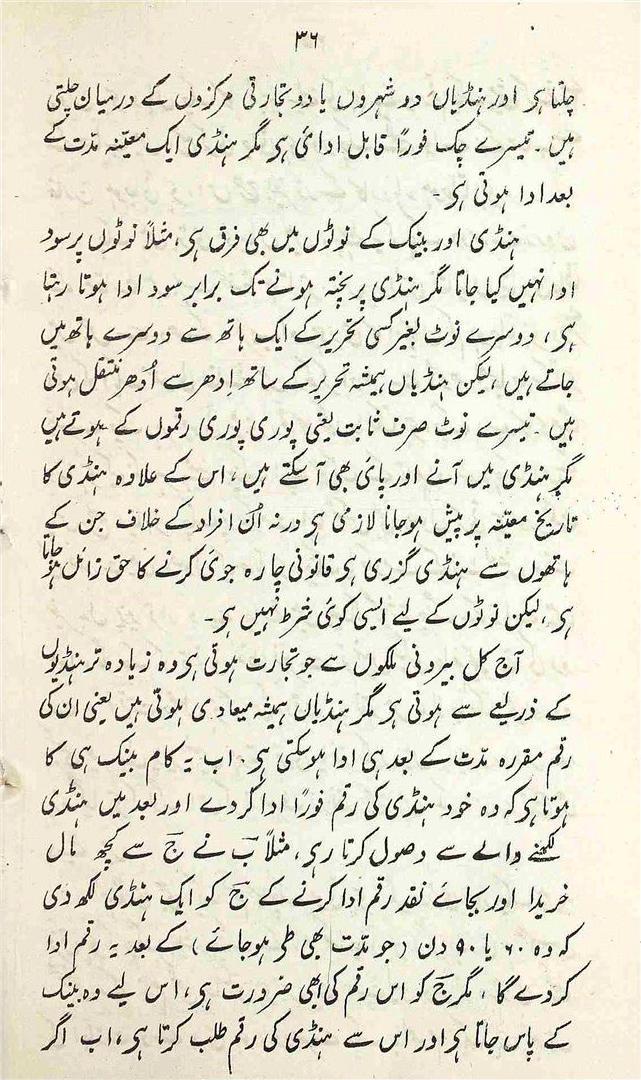 ۳۶
چلتا ہی اور ہنڈیاں دو شہروں یا دو تجارتی مرکزوں کے درمیان چلتی
ہیں ۔ تیسرے چک فوراً قابل ادائی ہی مگر ہنڈی ایک معیّنہ مدّت کے
بعد ادا ہوتی ہی ۔
ہنڈی اور بینک کے نوٹوں میں بھی فرق ہی ، مثلاً نوٹوں پر سود
ادا نہیں کیا جاتا مگر ہنڈی پر پختہ ہونے تک برابر سود ادا ہوتا رہتا
ہی ، دوسرے نوٹ بغیر کسی تحریر کے ایک ہاتھ سے دوسرے ہاتھ میں
جاتے ہیں ، لیکن ہنڈیاں ہمیشہ تحریر کے ساتھ اِدھر سے اُدھر منتقل ہوتی
ہیں ۔ تیسرے نوٹ صرف ثابت یعنی پوری پوری رقموں کے ہوتے ہیں
مگر ہنڈی میں آنے اور پائی بھی آسکتے ہیں ، اس کے علاوہ ہنڈی کا
تاریخ معیّنہ پر پیش ہوجانا لازمی ہی ورنہ اُن افراد کے خلاف جن کے
ہاتھوں سے ہنڈی گزری ہی قانونی چارہ جوئ کرنے کا حق زائل ہو جاتا
ہی ، لیکن نوٹوں کے لیے ایسی کوئ شرط نہیں ہی ۔
آج کل بیرونی ملکوں سے جو تجارت ہوتی ہی وہ زیادہ تر ہنڈیوں
کے ذریعے سے ہوتی ہی مگر ہنڈیاں ہمیشہ میعادی ہوتی ہیں یعنی ان کی
رقم مقررہ مدّت کے بعد ہی ادا ہوسکتی ہی ۔ اب یہ کام بینک ہی کا
ہوتا ہی کہ وہ خود ہنڈی کی رقم فوراً ادا کردے اور بعد میں ہنڈی
لکھنے والے سے وصول کرتا رہی ، مثلاً ب نے ج سے کچھ مال
خریدا اور بجائے نقد رقم ادا کرنے کے ج کو ایک ہنڈی لکھ دی
کہ وہ ۶۰ یا ۹۰ دن ( جو مدّت بھی طی ہوجائے ) کے بعد یہ رقم ادا
کردے گا ، مگر ج کو اس رقم کی ابھی ضرورت ہی ، اس لیے وہ بینک
کے پاس جاتا ہی اور اس سے ہنڈی کی رقم طلب کرتا ہی ، اب اگر